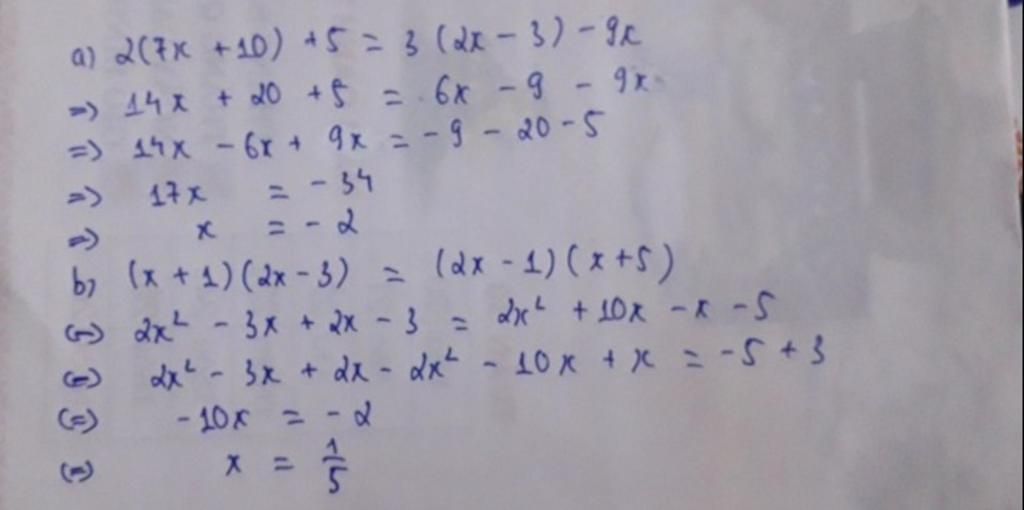 a) 2(7x + 10) + 5 = 3 (2x - 3) - 9x
=> 14x + 20 + 5 = 6x - 9 - 9x
=> 14x - 6x + 9x = -9 - 20 - 5
=> 17x = -34
=> x = -2
b) (x + 1)(2x - 3) = (2x - 1)(x + 5)
(=) 2x² - 3x + 2x - 3 = 2x² + 10x - x - 5
(=) 2x² - 3x + 2x - 2x² - 10x + x = -5 + 3
(=) -10x = -2
(=) x = 1/5